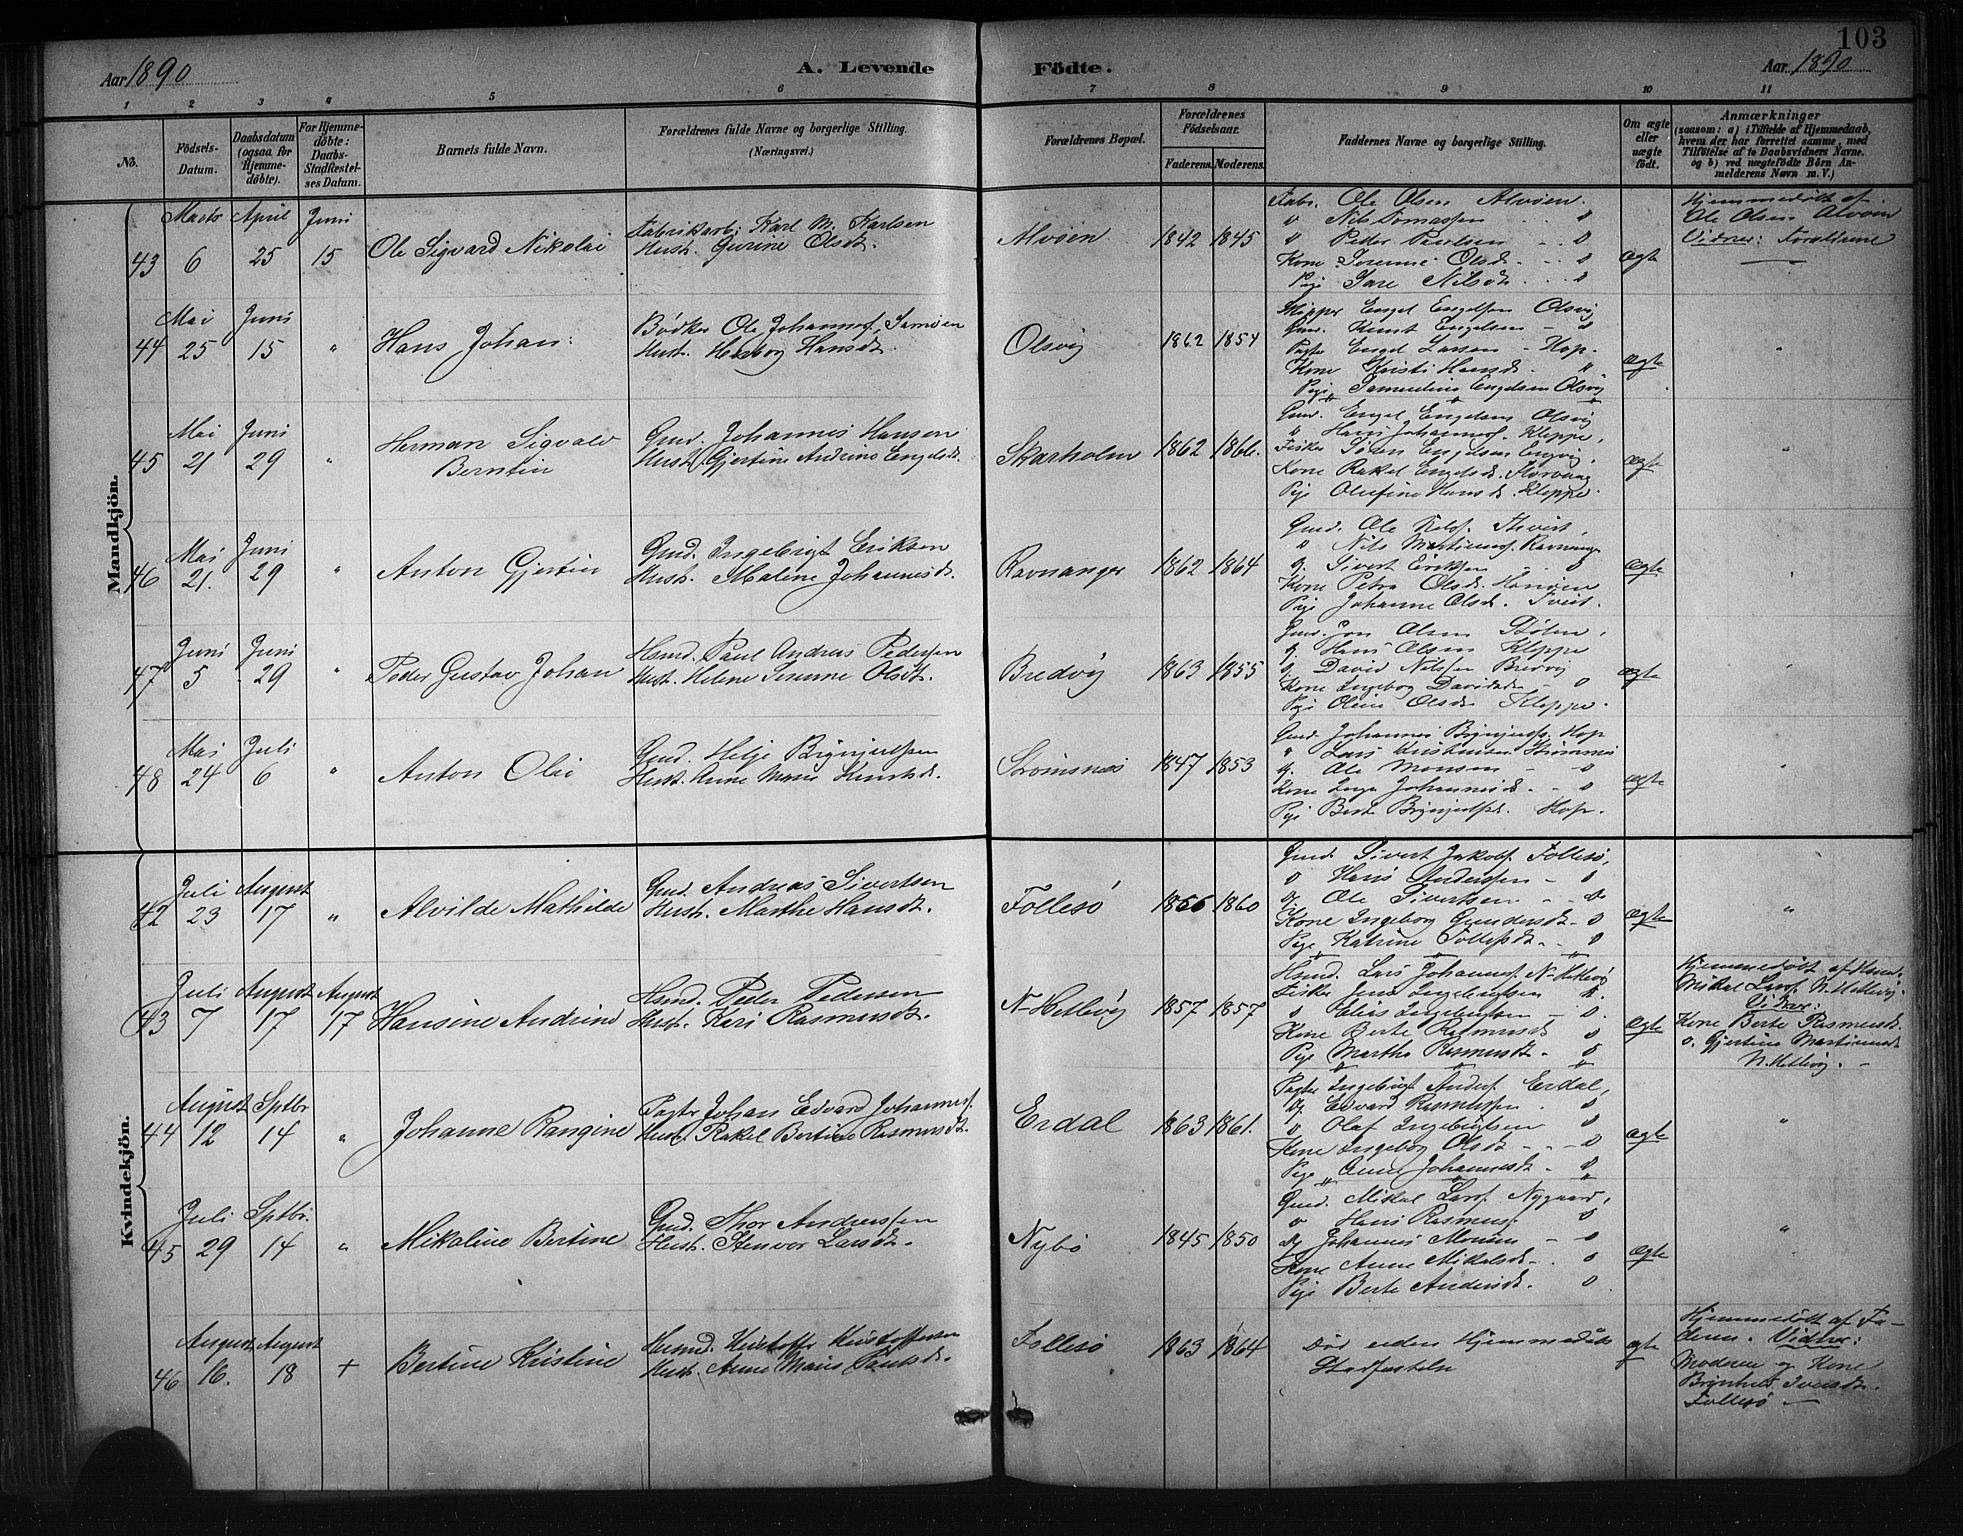 103
Aar 1890
A. Levende Födte.
Aar 1890
1 2 3 4 5 6 7 8 9 10 11
No.
Födsels-Datum.
Daabsdatum (ogsaa for Hjemme-döbte).
For Hjemme-döbte: Daabs-Stadfæstel-ses Datum.
Barnets fulde Navn.
Forældrenes fulde Navne og borgerlige Stilling. (Næringsvei.)
Forældrenes Bopæl.
Forældrenes Födselsaar.
Faderens. Moderens.
Faddernes Navne og borgerlige Stilling.
Om ægte eller uægte födt.
Anmærkninger
(saasom: a) i Tilfælde af Hjemmedaab, hvem der har forrettet samme, med Tilföielse af to Daabsvidners Navne. og b) ved uægtefödte Börn An-melderens Navn m. V.)
Mandkjön.
43
Marts 6
April 25
Juni 15
Ole Sigvard Nikolai
Fabrikarb: Karl M. Karlsen
Hust. Gurine Olsdt.
Alvøen
1842 1845
Fabr. Ole Olsen Alvøen
" Nils Tomassen "
" Peder Paulsen "
Kone Serenne Olsd. "
Pige Sare Nilsdt. "
ægte
Hjemmedøbt af
Ole Olsen Alvøen
Vidner: Forældrene
44
Mai 25
Juni 15
"
Hans Johan
Bødker Ole Johannes. Samøen
Hust. Herborg Hansdt.
Olsvig
1862 1854
Skipper Engel Engelsen Olsvig
Gmd. Knut Engelsen "
Pagter Engel Larsen Hop.
Kone Kristi Hansd. "
Pige Samueline Engelsen Olsvig
ægte
"
45
Mai 21
Juni 29
"
Herman Sigvald
Berntin
Gmd. Johannes Hansen
Hust. Gjertine Andrine Engelsdt.
Skarholm
1862 1866.
Gmd. Engel Engelsen Olsvig
" Hans Johannes. Kleppe,
Kone Rakel Engelsd.
Pige Olufine Hansd. Kleppe.
ægte
"
46
Mai 21.
Juni 29
"
Anton Gjertin
Gmd. Ingebrigt Eriksen
Hust. Maline Johannesd.
Ravnanger
1862 1864
Gmd. Ole Nils.
" Nils Martinus. Ravnanger
" Sivert Eriksen "
Kone Petra Olsd. Hanøen
Pige Johanne Olsd. Tveit.
ægte
"
47
Juni 5
Juni 29
"
Peder Gustav Johan
Hsmd. Paul Andreas Pedersen
Hust. Helene Serenne Olsdt.
Bredvig
1863 1855
Gmd. Jon Olsen Bølen,
" Hans Olsen Kleppe
" David Nilssen Bredvig
Kone Ingeborg Davidsd. "
Pige Oline Olsd. Kleppe.
ægte
"
48
Mai 24
Juli 6
"
Anton Olai
Gmd. Helje Brynjulfsen
Hust. Anne Marie Knutsd.
Strømsnes
1847 1853
Gmd. Johannes Brynjulfs. Hop
" Lars Kristensen Strømsnes
" Ole Monsen "
Kone Inga Johannesd. "
Pige Berte Brynjulfsd. Hop.
ægte
"
Kvindekjön.
42
Juli 23
August 17
"
Alvilde Mathilde
Gmd. Andreas Sivertsen
Hust. Marthe Hansdt.
Follesø
1866 1860
Gmd. Sivert Jakobs. Follesø,
" Hans Anderssen "
" Ole Sivertsen "
Kone Ingeborg Gundersdt. "
Pige Katrine Tollefsdt. "
ægte
"
43
Juli 7
August 17
August 17
Hansine Andrine
Hsmd. Peder Pedersen
Hust. Kari Rasmusdt.
N-Hetlevig
1857 1857
Hsmd. Lars Johannes. N-Hetlevig
Fisker Jens Ingebrigtsen "
" Elias Ingebrigtsen "
Kone Berte Rasmusdt "
Pige Martha Rasmusdt. "
ægte
Hjemmedøbt af Hsmd.
Mikal Lars. N. Hetlevig.
Vidner:
Kone Berte Rasmusdt.
o. Gjertine Martinusdt
N. Hetlevig.
44
August 12
Sptbr 14
"
Johanne Rangine
Pagter Johan Edvard Johannes.
Hust. Rakel Bertine Rasmusdt.
Erdal
1863 1861.
Pagter Ingebrigt Anders. Erdal,
" Edvard Rasmussen "
" Olaf Ingebrigtsen "
Kone Ingeborg Olsdt "
Pige Anne Johannesdt. "
ægte
"
45
Juli 29
Sptbr. 14
"
Mikaline Bertine
Gmd. Thor Anderssen
Hust. Stenvor Larsdt.
Nybø
1845 1850
Gmd. Mikal Lars. Nygaard,
" Hans Rasmus. "
" Johannes Monsen "
Kone Anne Mikalsdt. "
Pige Berte Andersdt. "
ægte
"
46
August 16.
August 18
+
Bertine Kristine
Hsmd. Kristoffer Kristoffersen
Hust. Anne Marie Knutsdt.
Follesø
1863 1864
Død uden Hjemmedaabs
Stadfæstelse
ægte
Hjemmedøbt af Fa-
deren. Vidner:
Moderen og Kone
Brynhild Iversdt.
Follesø